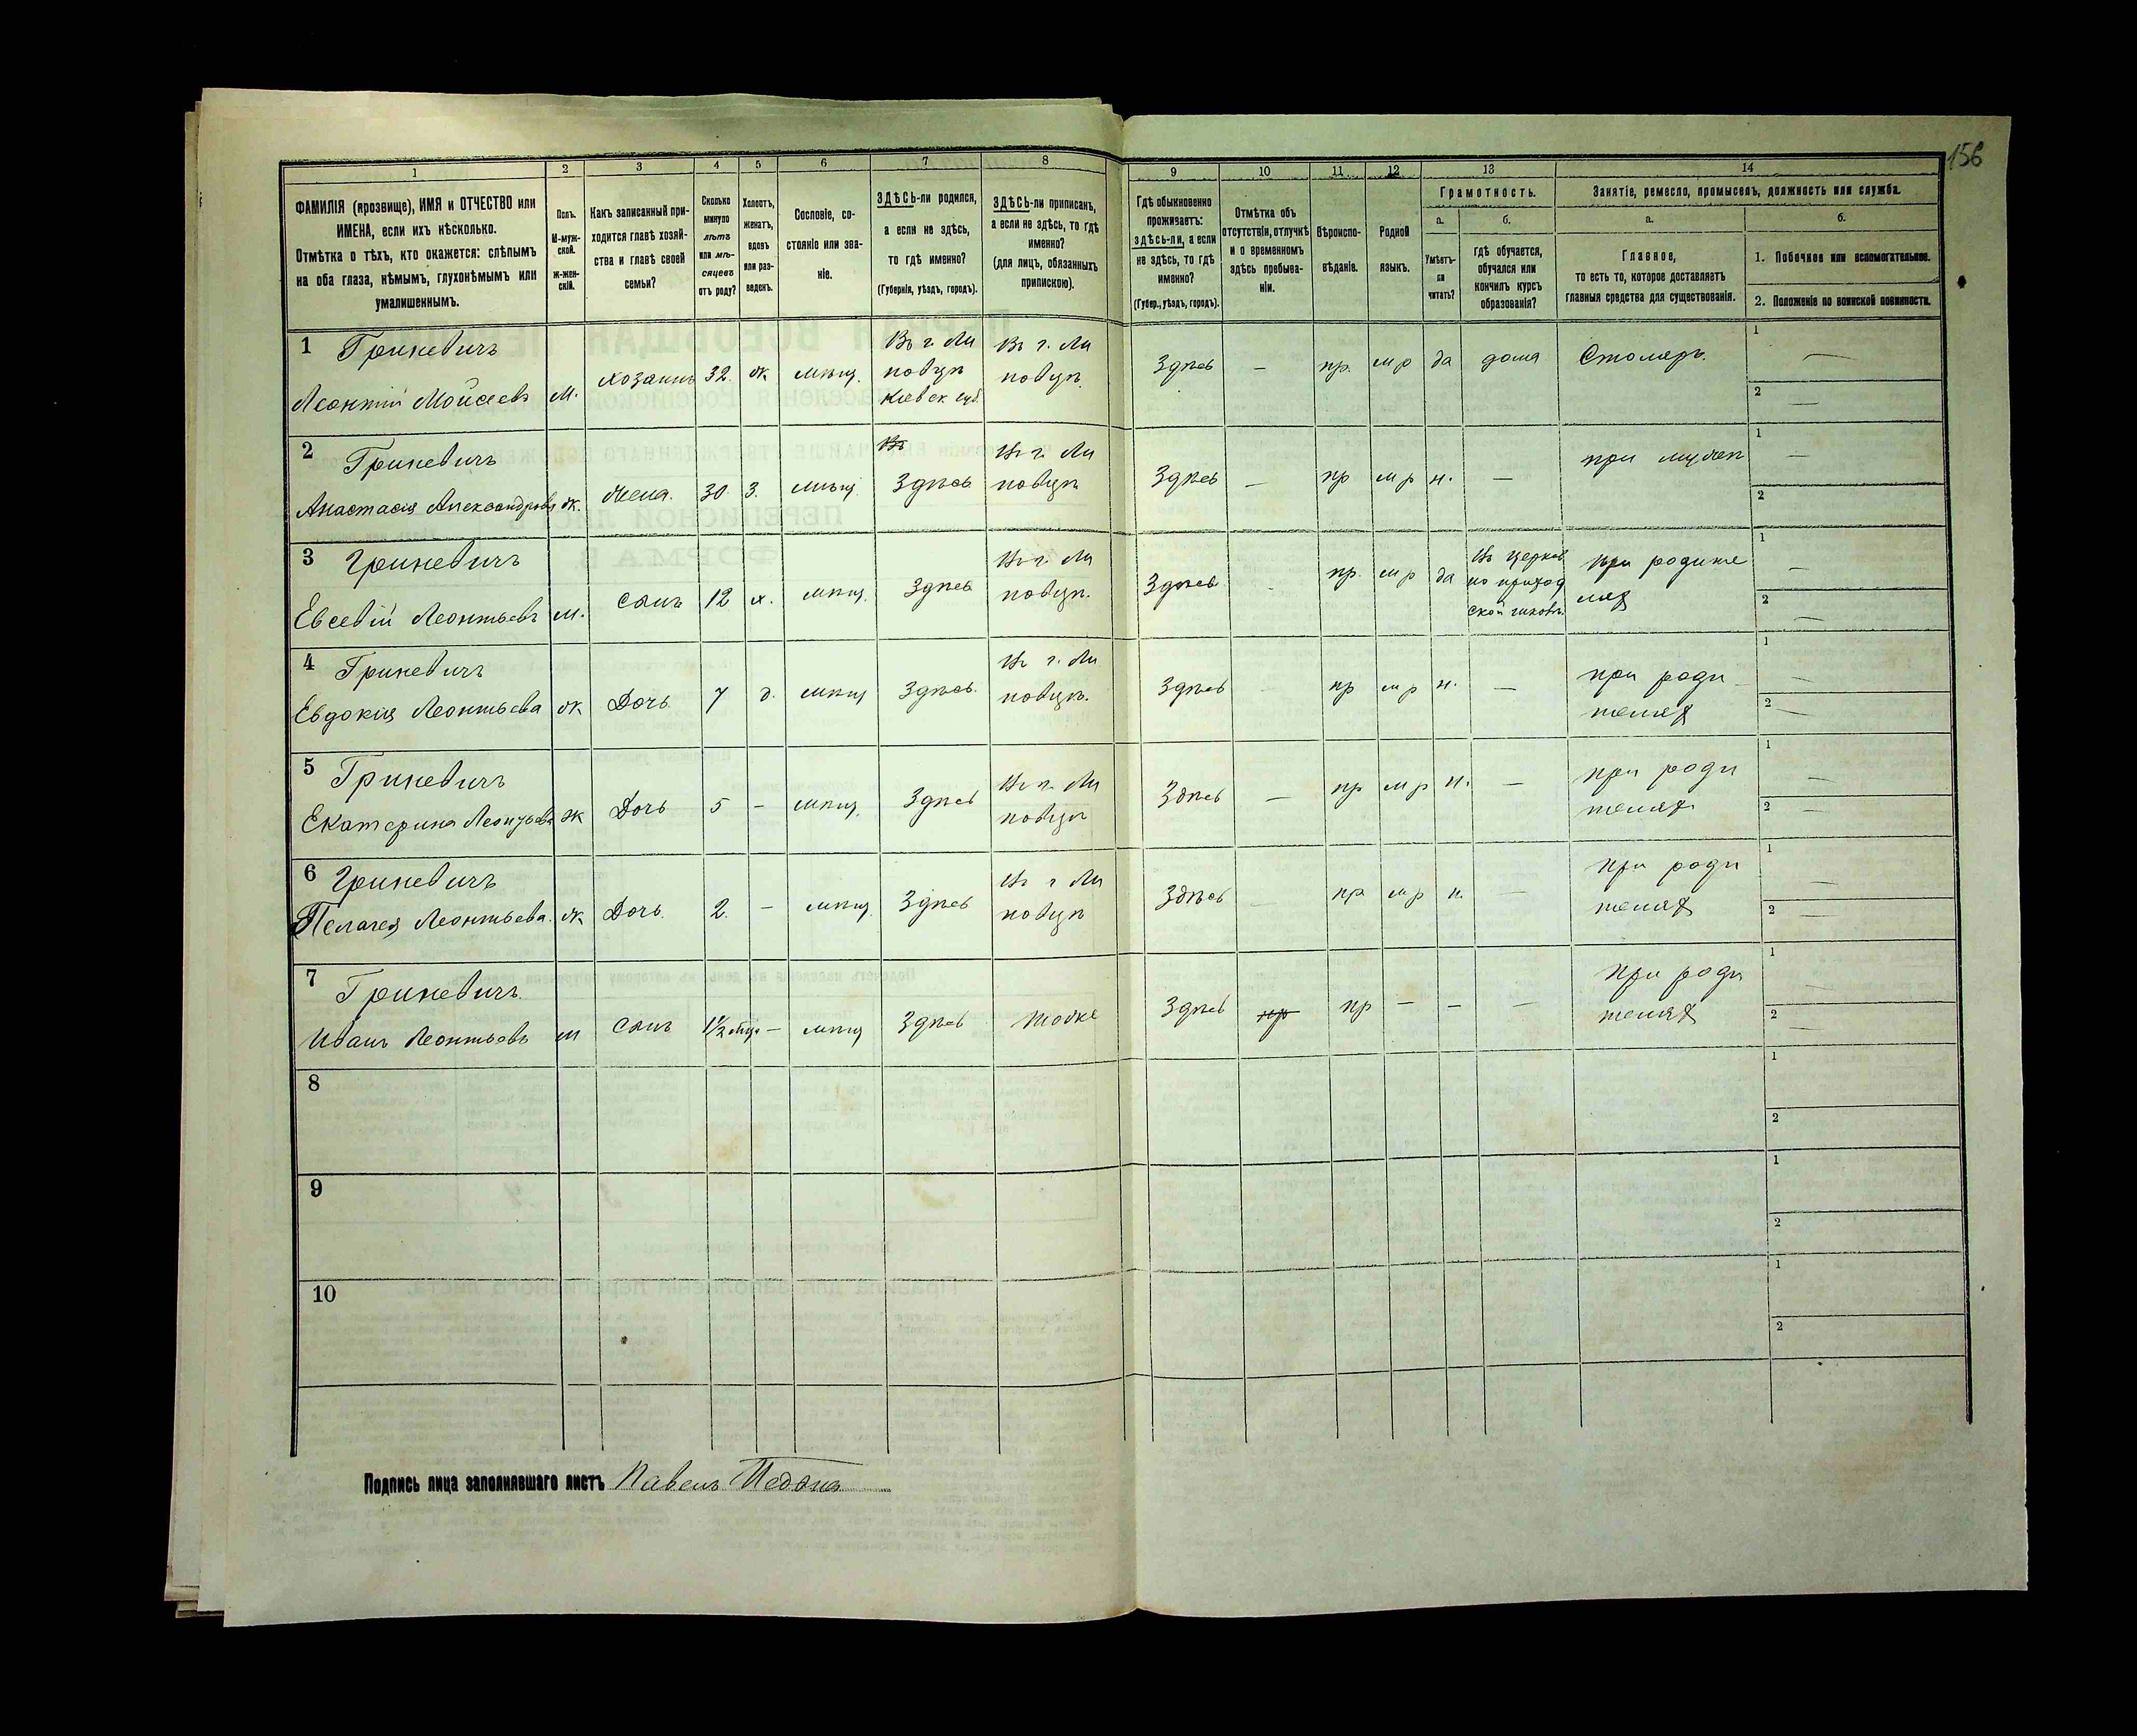 156
1 2 3 4 5 6 7 8 9 10 11 12 13 14
ФАМИЛІЯ (прозвище), ИМЯ и ОТЧЕСТВО или
ИМЕНА, если ихъ нѣсколько.
Отмѣтка о тѣхъ, кто окажется: слѣпымъ
на оба глаза, нѣмымъ, глухонѣмымъ или
умалишеннымъ.
Полъ.
М-муж-
ской.
Ж-жен-
скій.
Какъ записанный при-
ходится главѣ хозяй-
ства и главѣ своей
семьи?
Сколько
минуло
лѣтъ
или мѣ-
сяцевъ
отъ роду?
Холостъ,
женатъ,
вдовъ
или раз-
веденъ.
Сословіе, со-
стояніе или зва-
ніе.
ЗДѢСЬ-ли родился,
а если не здѣсь,
то гдѣ именно?
(Губернія, уѣздъ, городъ).
ЗДѢСЬ-ли приписанъ,
а если не здѣсь, то гдѣ
именно?
(для лицъ, обязанныхъ
припискою).
Гдѣ обыкновенно
проживаетъ:
здѣсь-ли, а если
не здѣсь, то гдѣ
именно?
(Губер., уѣздъ, городъ).
Отмѣтка объ
отсутствіи, отлучкѣ
и о временномъ
здѣсь пребыва-
ніи.
Вѣроиспо-
вѣданіе.
Родной
языкъ.
Грамотность.
а.
Умѣетъ-
ли
читать?
б.
Гдѣ обучается,
обучался или
кончилъ курсъ
образованія?
Занятіе, ремесло, промыселъ, должность или служба.
а.
Главное,
то есть то, которое доставляетъ
главныя средства для существованія.
б.
1. Побочное или вспомогательное.
2. Положеніе по воинской повинности.
1 Гриневичъ
Леонтій Мойсеевъ
м.
хозаинъ
32.
ж
мѣщ.
Въ г. Ли
повцѣ
Кіевск губ.
Въ г. Ли
повцѣ.
Здѣсь
—
пр.
м р
да
дома
Столяръ.
1 —
2 —
2 Гриневичъ
Анастасія Александрова
ж.
Жена.
30
З.
мѣщ
Въ
Здѣсь
Въ г. Ли
повцѣ
Здѣсь
—
пр
м р
н.
—
при мужѣ
1 —
2
3 Гриневичъ
Евсевій Леонтьевъ
м.
Сынъ
12
х.
мѣщ.
Здѣсь
Въ г. Ли
повцѣ.
Здѣсь
пр.
м р
да
Въ церков
но приход
ской школѣ
при родите
ляхъ
1 —
2 —
4 Гриневичъ
Евдокія Леонтьева
ж
Дочь.
7
д.
мѣщ
Здѣсь.
Въ г. Ли
повцѣ.
Здѣсь
пр
м р
н.
—
при роди
теляхъ
1 —
2 —
5 Гриневичъ
Екатерина Леонтьева
ж
Дочь
5
—
мѣщ.
Здѣсь
Въ г. Ли
повцѣ
Здѣсь
—
пр
м р
н.
—
при роди
теляхъ
1 —
2 —
6 Гриневичъ
Пелагея Леонтьева.
ж
Дочь.
2.
—
мѣщ.
Здѣсь
Въ г Ли
повцѣ
Здѣсь
пр
м р
н.
—
при роди
теляхъ
1 —
2 —
7 Гриневичъ.
Иванъ Леонтьевъ
м
Сынъ
1½ мѣця
—
мѣщ
Здѣсь
тоже
Здѣсь
пр
пр
—
—
—
при роди
теляхъ
1 —
2 —
8
1
2
9
1
2
10
1
2
Подпись лица заполнявшаго листъ Павелъ